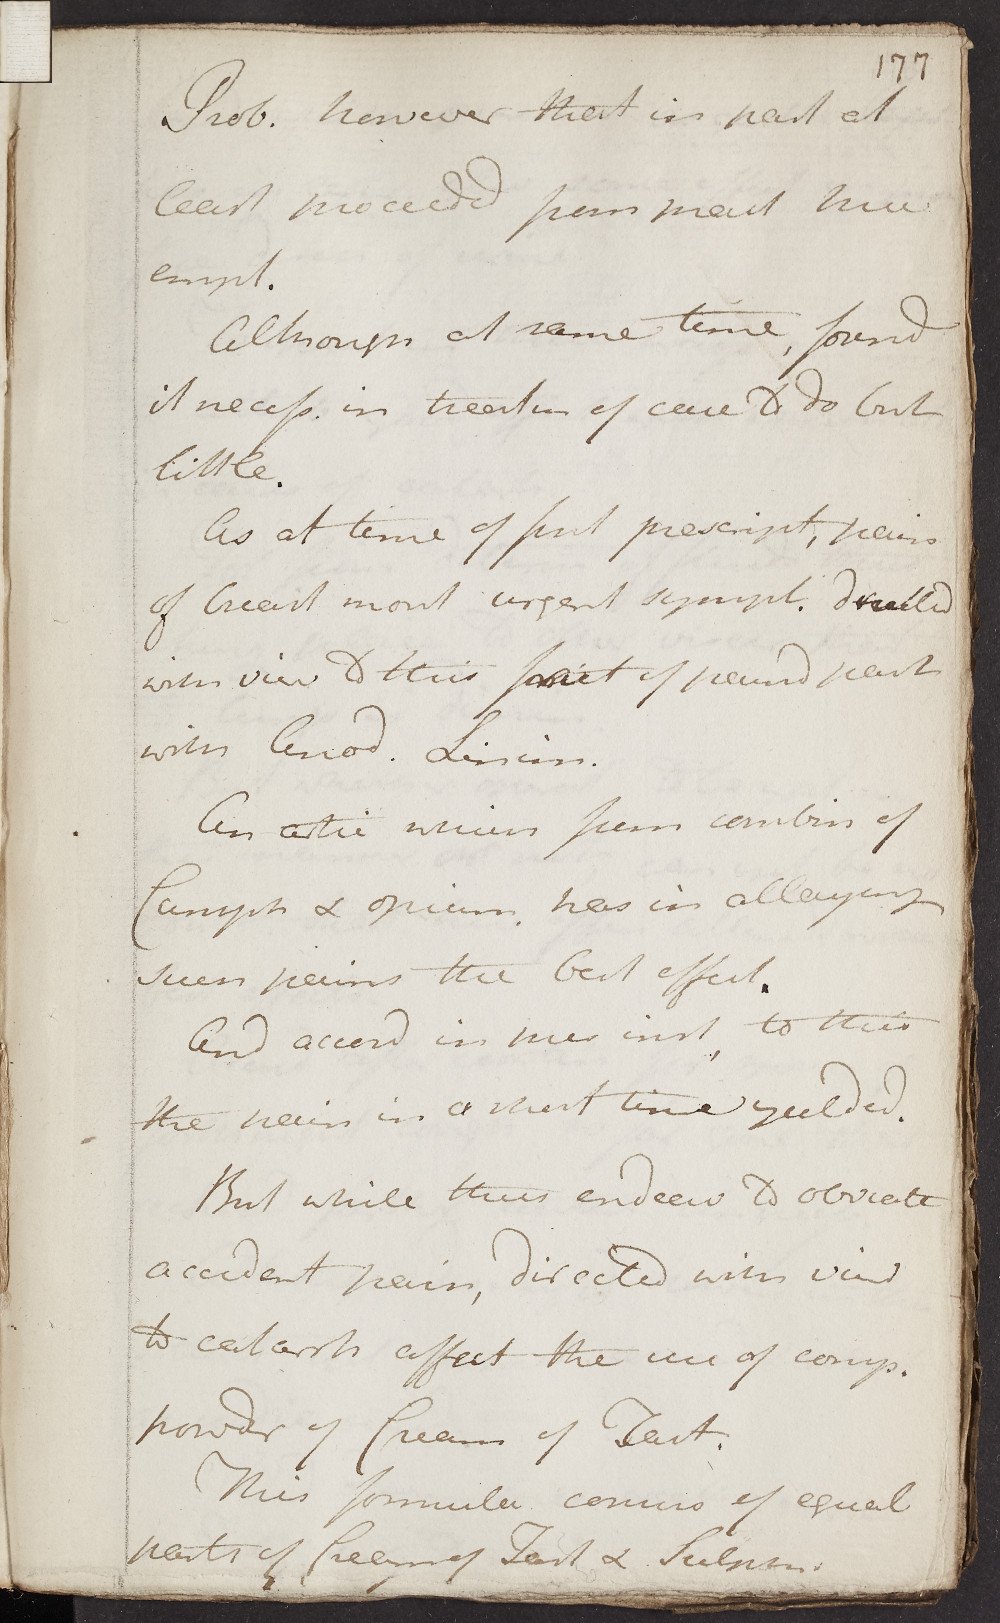 177
Prob. however that in part at
least proceeded from
empt.
Although at same time, found
it necess. in treatm of case to do but
little.
As at time of first prescript, pain
of breast most urgent sympt. directed
with view to this of pained part
with Anod. Linim.
An artic which from combin of
Camph & opium, has in allaying
such pains the best effect.
And accord in this inst, to this
the pain in a short time yielded.
But while thus endeav to obviate
accident pain, directed with view
to catarrh affect the use of comp.
powder of Cream of Tart.
This formula consis of equal
parts of Cream of Tart & Sulphur.